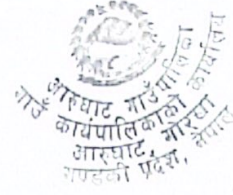 आरुघाट गाउँपालिका
गाउँ कार्यपालिकाको कार्यालय
आरुघाट, गोरखा
गण्डकी प्रदेश, नेपाल